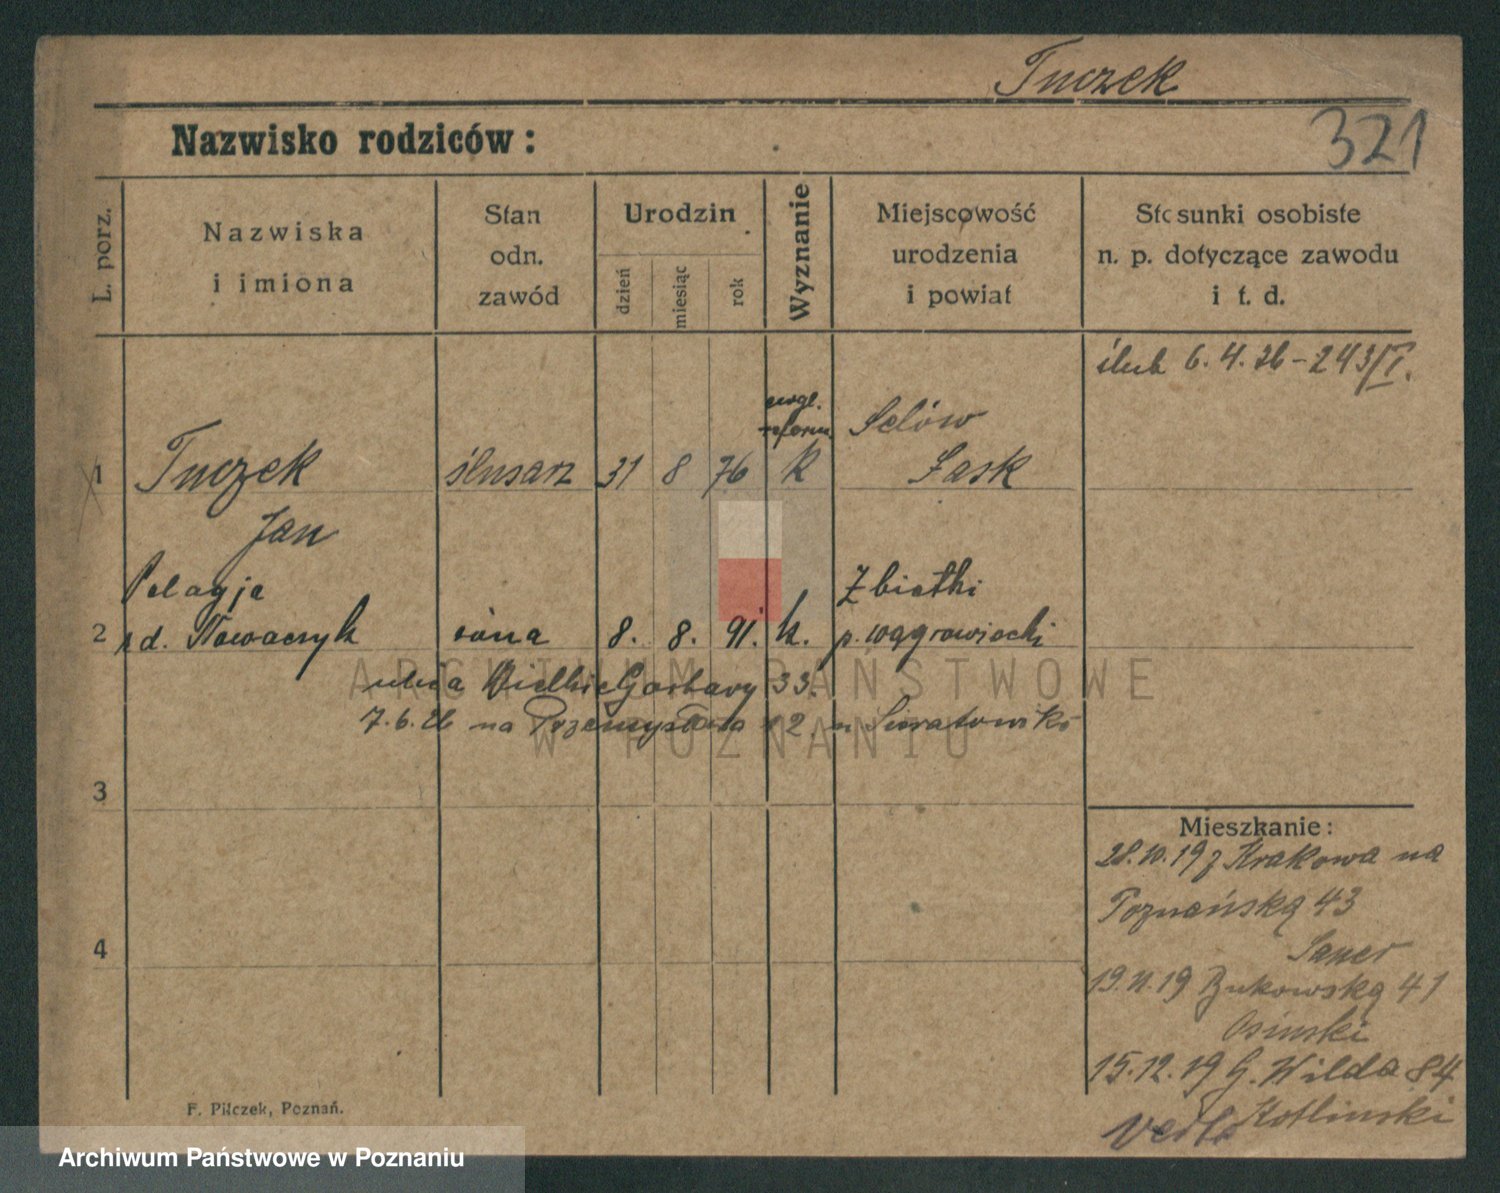 Tuczek
321
Nazwisko rodziców:
L. porz.
Nazwiska
i imiona
Stan
odn.
zawód
Urodzin
dzień
miesiąc
rok
Wyznanie
Miejscowość
urodzenia
i powiat
Stosunki osobiste
n. p. dotyczące zawodu
i t. d.
ślub 6. 4. 26 - 243/I.
ewgl.
reform. Selów
1 Tuczek ślusarz 31 8 76 k Łask
Jan
Pelagje Zbietki
2 rd. Nowaczyk żona 8. 8. 91. k. p. wągrowiecki
ulica Wielkie Garbary 33.
7.6.26 na Przemysłowa 12
3
Mieszkanie:
28.10.19 z Krakowa na
Poznańską 43
4
19.11.19 Bukowską 41
Osinski
15.12.19 G. Wilda 84
Kotlinski
verte
F. Pilczek, Poznań.
ARCHIWUM PAŃSTWOWE
W POZNANIU
Archiwum Państwowe w Poznaniu